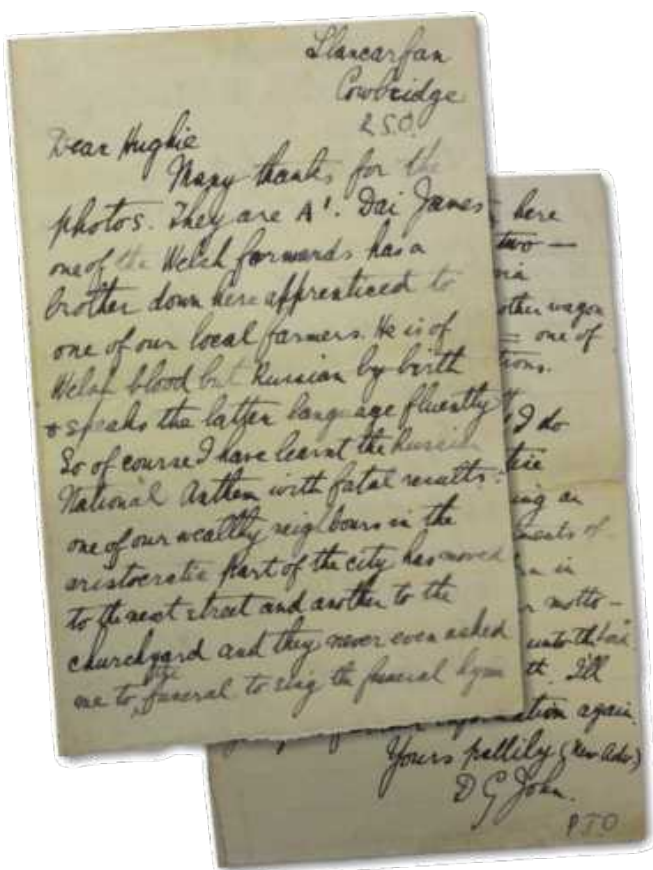 Llancarfan
Cowbridge
R.S.O.
Dear Hughie
Many thanks for the
photos. They are A1. Dai James
one of the Welsh forwards has a
brother down here apprenticed to
one of our local farmers. He is of
Welsh blood but Russian by birth
& speaks the latter language fluently
So of course I have learnt the Russian
National Anthem with fatal results:
one of our wealthy neighbours in the
aristocratic part of the city has moved
to the next street and another to the
churchyard and they never even asked
me to the funeral to sing the funeral hymn
here
two —
other wagon
one of
I do
ing an
ments of
in
motto —
unto the Lord
I'll
information again.
Yours pallily (New Adv.)
D G John.
P.T.O